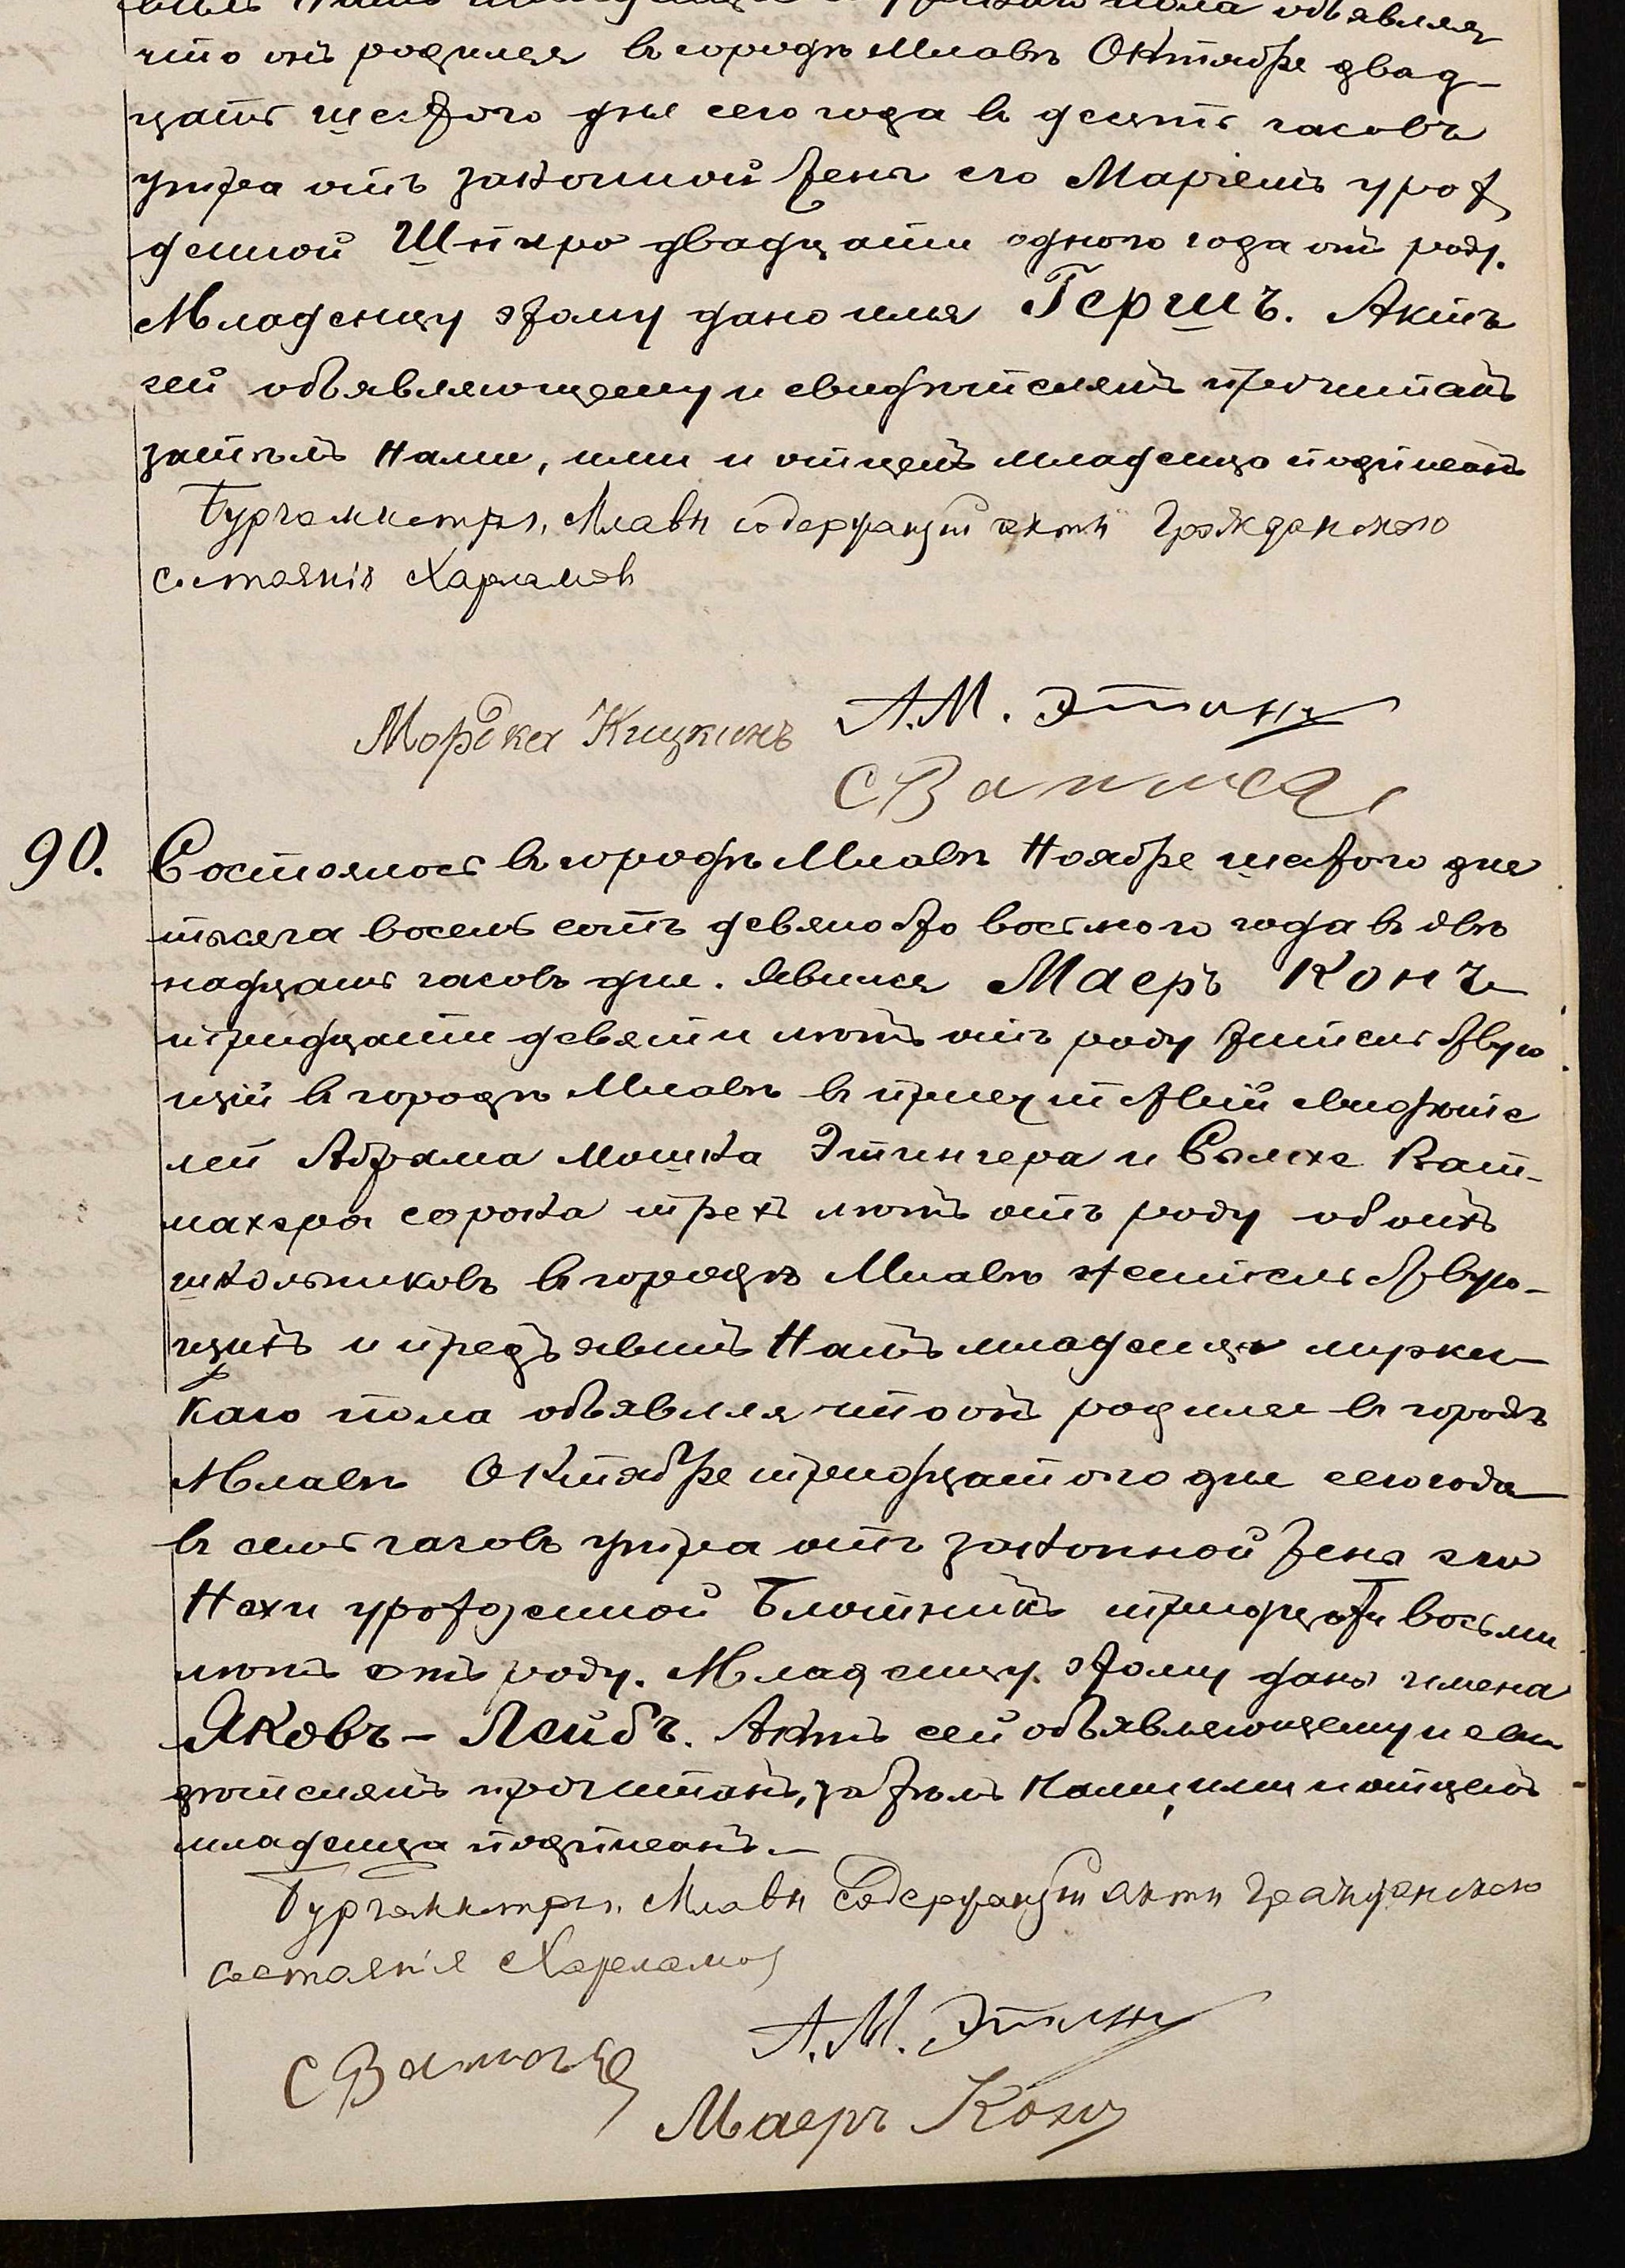 что онъ родился въ городѣ Млавѣ Октября двад-
цать шестого дня сего года въ десять часовъ
утра отъ законной жены его Маріемъ урож
денной Шпиро двадцати одного года отъ роду.
Младенцу этому дано имя Гершъ. Актъ
сей объявляющему и свидѣтелямъ прочитанъ
затѣмъ Нами, ими и отцемъ младенца подписанъ
Бургомистръ г. Млавы содержащій акты Гражданскаго
состоянія Харламовъ
Мордка Кицкинъ А.М. Этингъ
90. Состоялось въ городѣ Млавѣ Ноября шестого дня
тысяча восемь сотъ девяносто восьмого года въ двѣ
надцать часовъ дня. Явился Маеръ Конъ
тридцати девяти лѣтъ отъ роду жительствую
щій въ городѣ Млавѣ въ присутствіи свидѣте
лей Абрама Мошка Этингера и Сымхе Ват-
махера сорока трехъ лѣтъ отъ роду обоихъ
школьниковъ въ городѣ Млавѣ жительствую-
щихъ и предъявилъ Намъ младенца мужес-
каго пола объявляя что онъ родился въ городѣ
Млавѣ Октября тридцатого дня сего года
въ семь часовъ утра отъ законной жены его
Нехи урожденной Блотникъ тридцати восьми
лѣтъ отъ роду. Младенцу этому даны имена
Яковъ-Лейбъ. Актъ сей объявляющему и сви
дѣтелямъ прочитанъ, затѣмъ Нами, ими и отцемъ
младенца подписанъ.-
Бургомистръ г. Млавы Содержащій акты Гражданскаго
состоянія Харламовъ
А.М. Этингъ
Маеръ Конъ